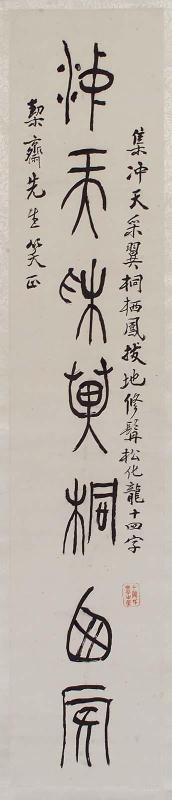 集冲天采翼桐栖鳳拔地修髯松化龍十四字
冲天采翼桐栖鳳
栔齋先生笑正